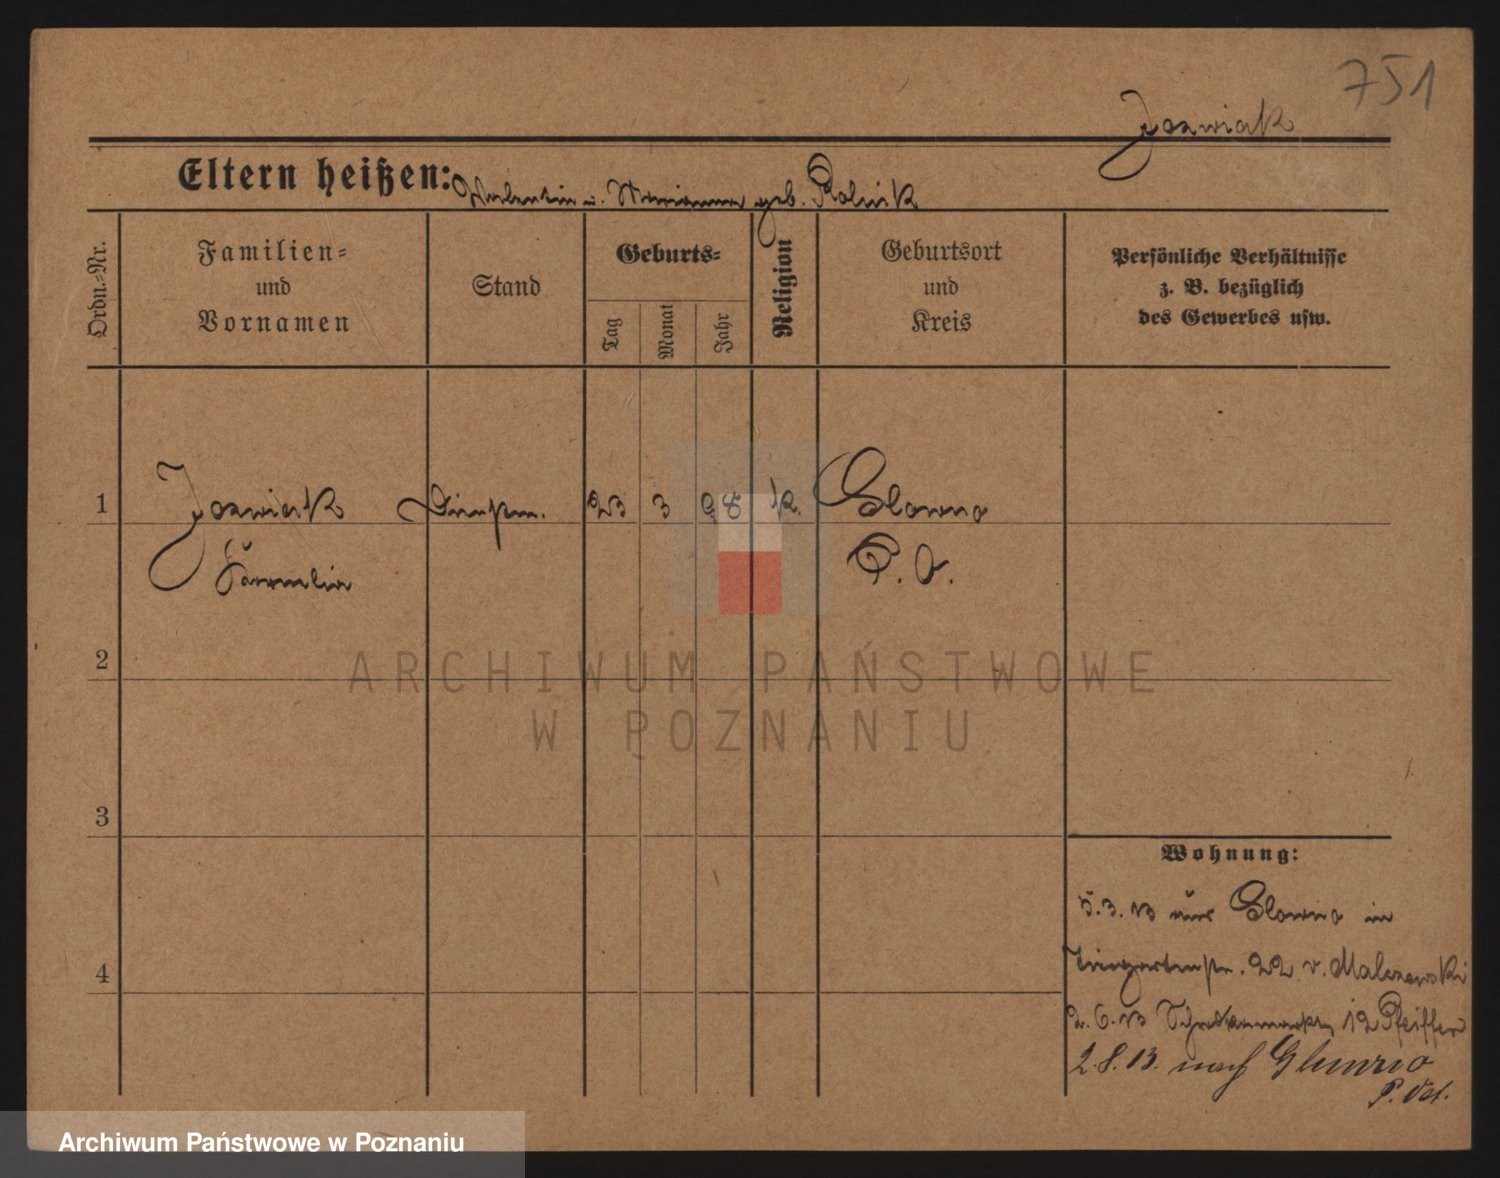 751
Jozwiak
Eltern heißen: Valentin u. Marianna geb. Rolnik
Ordn.-Nr.
Familien-
und
Vornamen
Stand
Geburts-
Tag
Monat
Jahr
Religion
Geburtsort
und
Kreis
Persönliche Verhältnisse
z. B. bezüglich
des Gewerbes usw.
1
Jozwiak
Dienstm.
23
3
98
k.
Glowno
P. O.
2
3
4
Wohnung:
5.3.13 aus Glowno in
Tiergartenstr. 22 v. Malczewski
2.6.13 12 Pfeiffer
2.8.13. nach Glowno
P. Ost.
ARCHIWUM PAŃSTWOWE
W POZNANIU
Archiwum Państwowe w Poznaniu